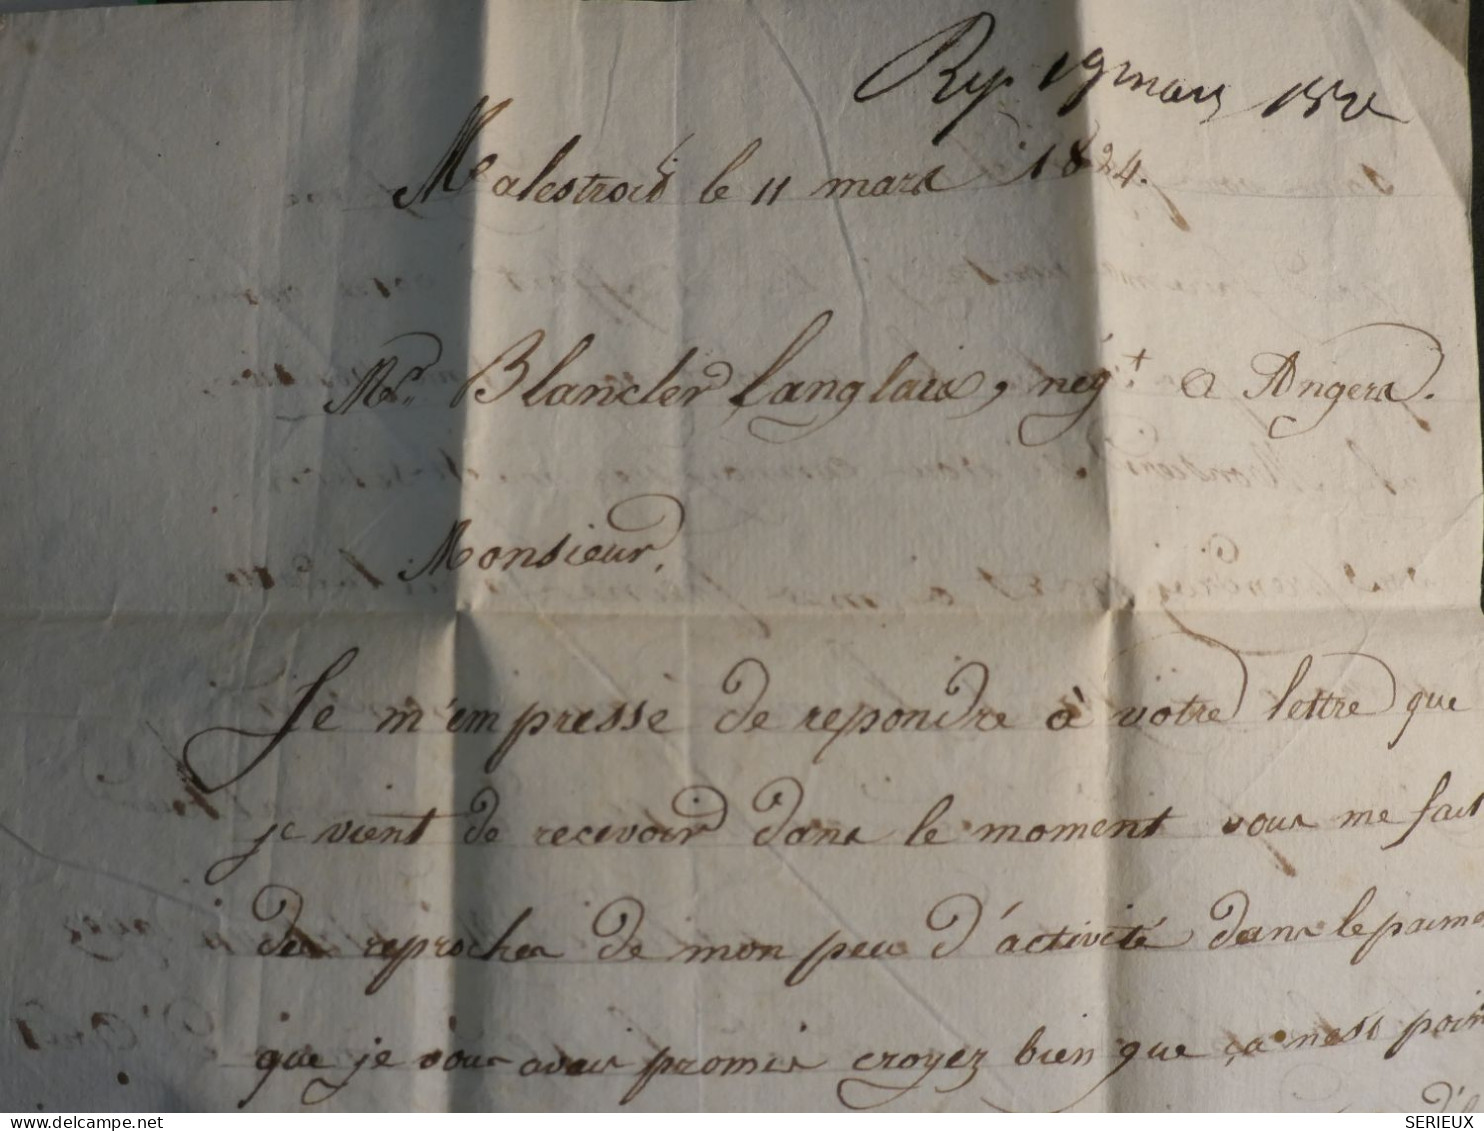 Rep. 19 mars
Malestroid le 11 mars 1824.
Mr. Blancler Langlaix, négt. a Angers.
Monsieur,
Je m'empresse de repondre à votre lettre que
je vient de recevoir dans le moment vous me fait
des reproches de mon peu d'activité dans le
que je vous avais promis croyez bien que ça nest point
SERIEUX